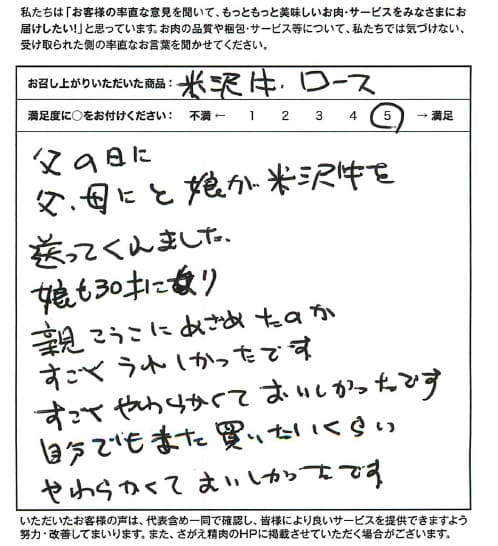 私たちは「お客様の率直な意見を聞いて、もっともっと美味しいお肉・サービスをみなさまにお
届けしたい！」と思っています。お肉の品質や梱包・サービス等について、私たちでは気づけない、
受け取られた側の率直なお言葉を聞かせてください。
お召し上がりいただいた商品： 米沢牛．ロース
満足度に○をお付けください： 不満 ← 1 2 3 4 5 → 満足
父の日に
父．母にと娘が米沢牛を
送ってくれました．
娘も30才になり
親こうこにめざめたのか
すごくうれしかったです
すごくやわらかくておいしかったです
自分でもまた買いたいくらい
やわらかくておいしかったです
いただいたお客様の声は、代表含め一同で確認し、皆様により良いサービスを提供できますよう
努力・改善してまいります。また、さがえ精肉のHPに掲載させていただく場合がございます。